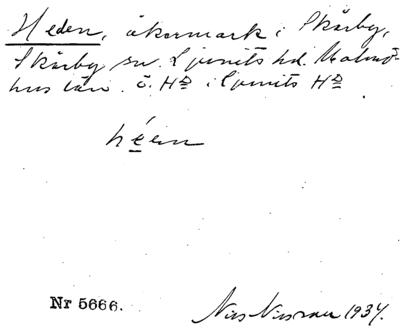 Heden, åkermark i Skårby,
Skårby sn. Ljunits hd. Malmö-
hus län. ö. HD i Ljunits HD
héen
Nr 5666.
Nils Nilsson 1934.